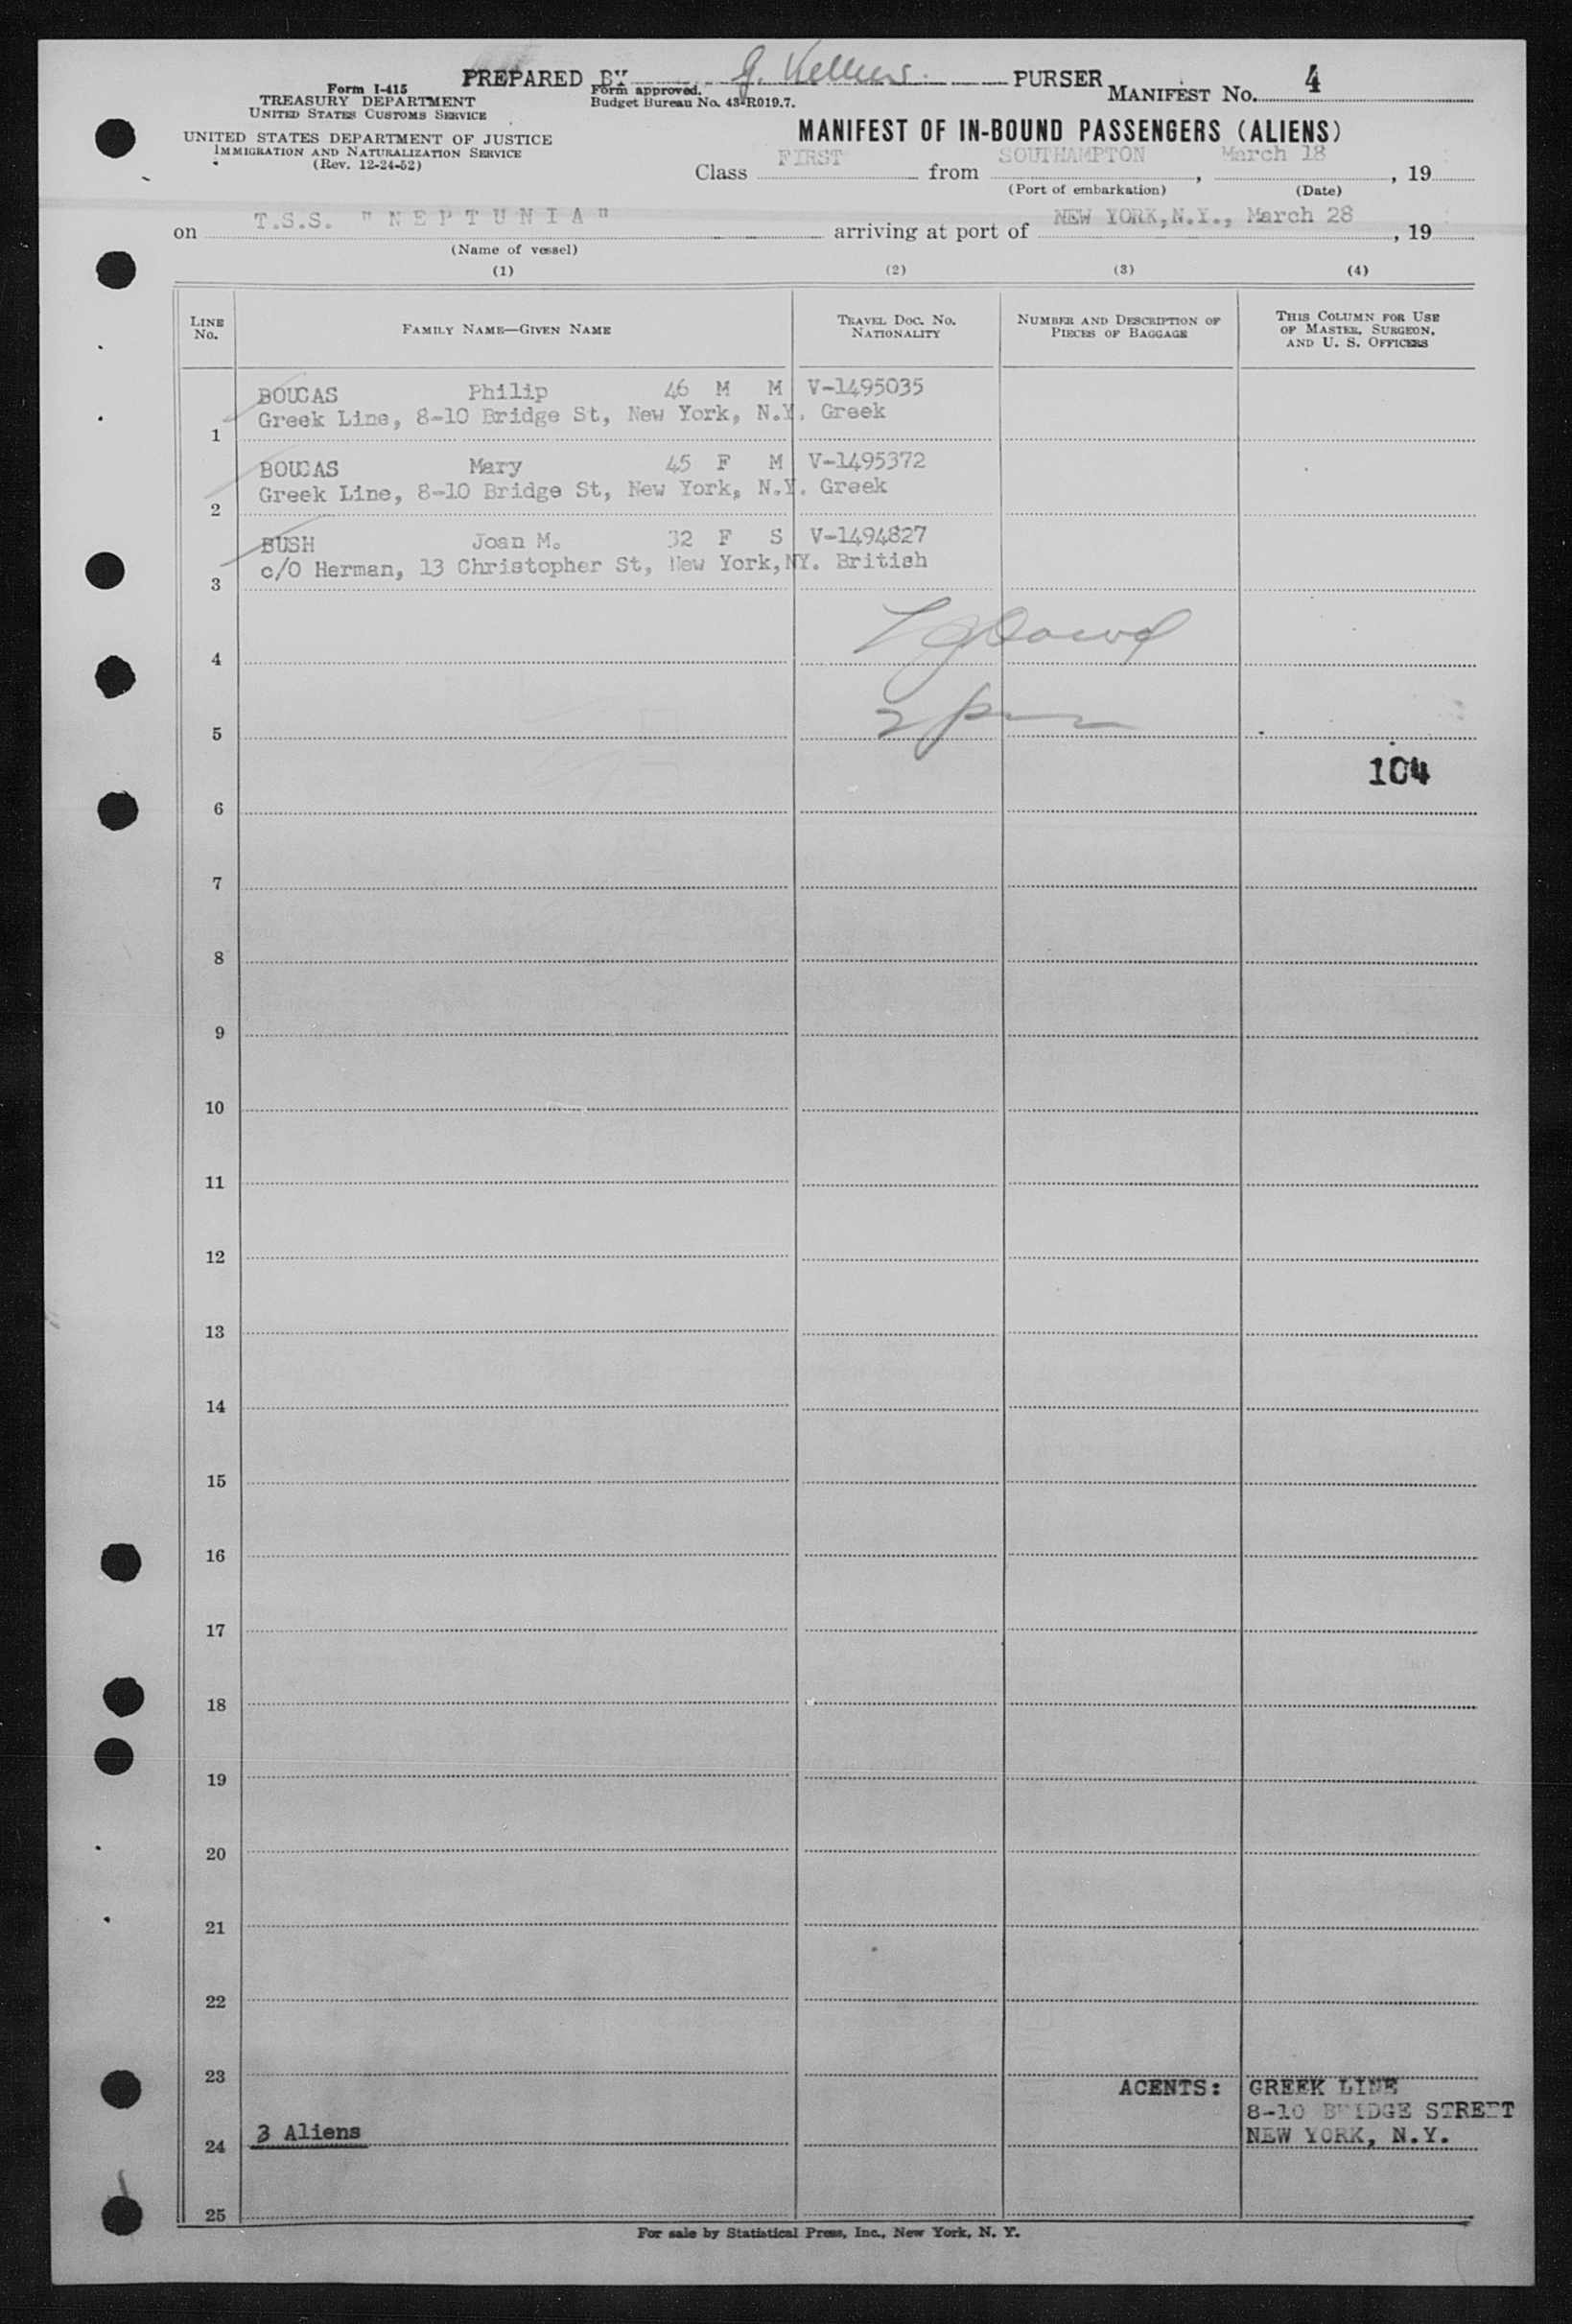 PREPARED BY G. Kellers. PURSER
Form I-415
TREASURY DEPARTMENT
UNITED STATES CUSTOMS SERVICE
UNITED STATES DEPARTMENT OF JUSTICE
IMMIGRATION AND NATURALIZATION SERVICE
(Rev. 12-24-52)
Form approved.
Budget Bureau No. 43-R019.7.
MANIFEST No. 4
MANIFEST OF IN-BOUND PASSENGERS (ALIENS)
Class FIRST from SOUTHAMPTON, March 18, 19
(Port of embarkation) (Date)
on T.S.S. "NEPTUNIA" arriving at port of NEW YORK,N.Y., March 28, 19
(Name of vessel)
(1) (2) (3) (4)
LINE No. FAMILY NAME—GIVEN NAME TRAVEL DOC. No. NATIONALITY NUMBER AND DESCRIPTION OF PIECES OF BAGGAGE THIS COLUMN FOR USE OF MASTER, SURGEON, AND U. S. OFFICERS
BOUCAS Philip 46 M M V-1495035
1 Greek Line, 8-10 Bridge St, New York, N.Y. Greek
BOUCAS Mary 45 F M V-1495372
2 Greek Line, 8-10 Bridge St, New York, N.Y. Greek
BUSH Joan M. 32 F S V-1494827
3 c/O Herman, 13 Christopher St, New York,NY. British
4
5
104
6
7
8
9
10
11
12
13
14
15
16
17
18
19
20
21
22
23
AGENTS: GREEK LINE
8-10 BRIDGE STREET
24 3 Aliens NEW YORK, N.Y.
25
For sale by Statistical Press, Inc., New York, N. Y.